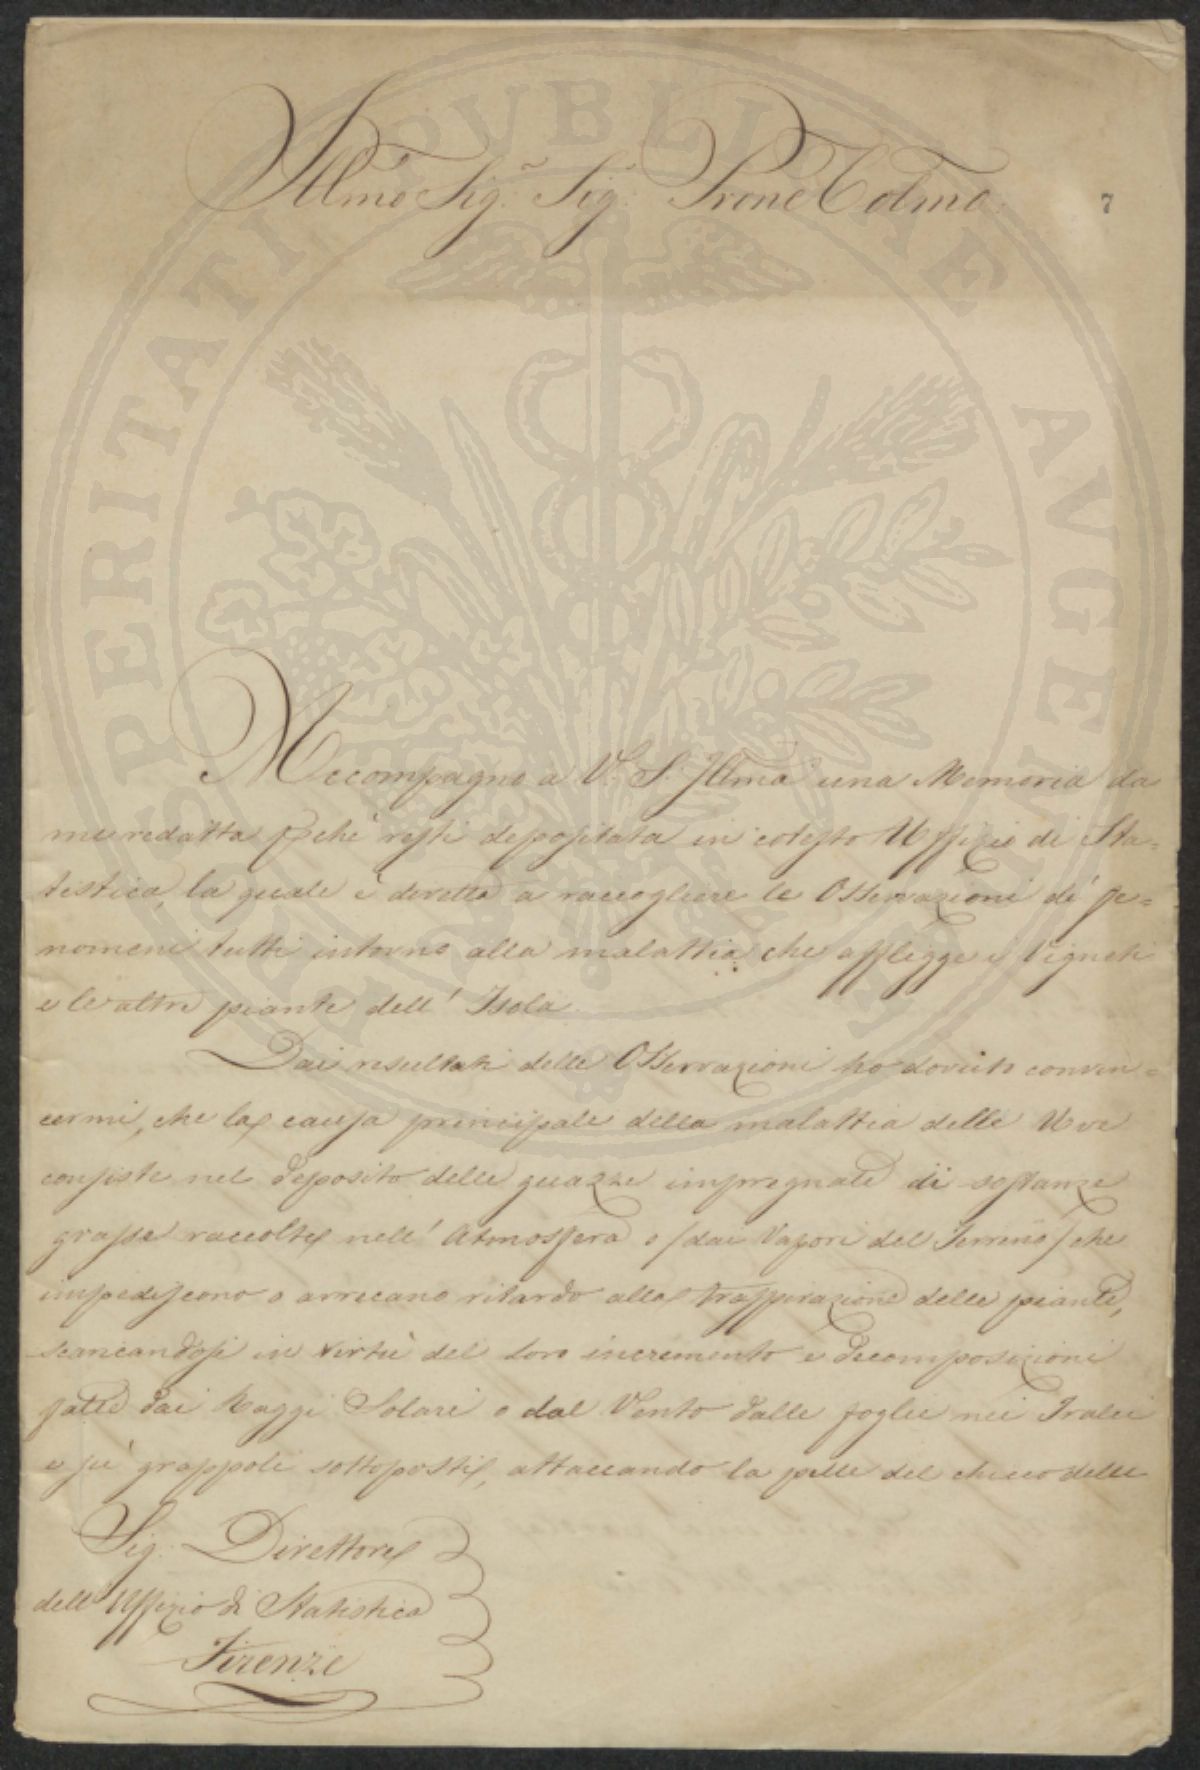 Illmo Sig.r Sig.r Prone Colmo
7
Accompagno a V. S. Illma una Memoria da
me redatta pchè resti depositata in cotesto Uffizio di Sta=
tistica, la quale è diretta a raccogliere le Osservazioni de' fe=
nomeni tutti intorno alla malattia che affligge i Vigneti
e le altre piante dell' Isola.
Dai resultati delle Osservazioni ho dovuto convin=
cermi, che la causa principale della malattia delle Uve
consiste nel deposito delle guazze impregnate di sostanze
grasse raccolte nell' Atmosfera o/dai Vapori del Terreno/che
impediscono o arrecano ritardo alla traspirazione delle piante,
scaricandosi in virtù del loro incremento e decomposizioni
fatte dai Raggi Solari o dal Vento dalle foglie nei Tralci
e su' grappoli sottoposti, attaccando la pelle del chicco delle
Sig. Direttore
dell' Uffizio di Statistica
Firenze
PROSPERITATI PUBLICAE AVGENDAE